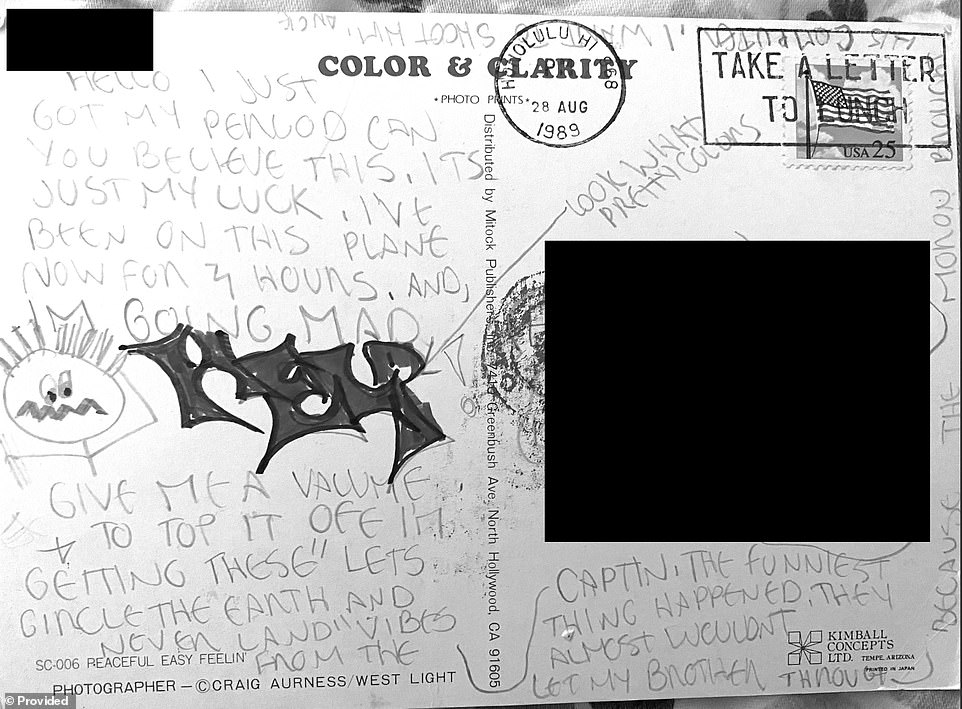 COLOR & CLARITY
*PHOTO PRINTS*
HELLO I JUST
GOT MY PERIOD CAN
YOU BELIEVE THIS, ITS
JUST MY LUCK. I'VE
BEEN ON THIS PLANE
NOW FOR 4 HOURS, AND,
IM GOING MAD
GIVE ME A VALUME
+ TO TOP IT OFF I'M
GETTING THESE "LETS
CIRCLE THE EARTH AND
NEVER LAND" VIBES
FROM THE
SC-006 PEACEFUL EASY FEELIN'
PHOTOGRAPHER – ©CRAIG AURNESS/WEST LIGHT
Distributed by Mitock Publishers, Greenbush Ave. North Hollywood, CA 91605
HONOLULU HI 968
28 AUG
1989
TAKE A LETTER
TO LUNCH
USA 25
LOOK WHAT
PRETTY COLORS
CAPTIN, THE FUNNIEST
THING HAPPENED, THEY
ALMOST WOULDN'T
LET MY BROTHER THROUGH
BECAUSE THE MORON BROUGHT
HIS COMPUTER, I WANT TO SHOOT HIM.
KIMBALL
CONCEPTS
LTD. TEMPE, ARIZONA
PRINTED IN JAPAN
© Provided